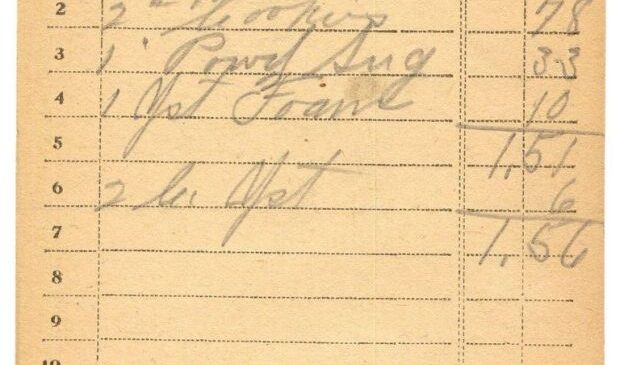 2 2 Cookies 78
3 1 Powd Sug 33
4 1 Yst Foam 10
5 1,51
6 2 Yst 6
7 1,56
8
9
10